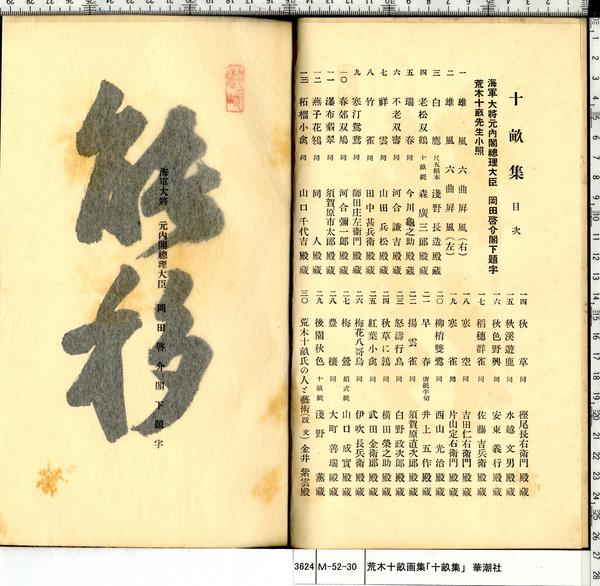 十畝集 目次
海軍大將元內閣總理大臣 岡田啓介閣下題字
荒木十畝先生小照
一 雄風 六曲屏風(右)
二 雄風 六曲屏風(左)
三 白鷹 尺五絹本 淺野長造殿藏
四 老松双鶴 十畝紙 森廣三郎殿藏
五 瑞春 同 今川龜之助殿藏
六 不老双壽 同 河合謙吉殿藏
七 祥雲 同 山田兵松殿藏
八 竹雀 同 田中甚兵衛殿藏
九 寒汀鴛鴦 同 師田庄左衛門殿藏
一〇 春郊双鳩 同 河合彌一郎殿藏
一一 瀑布翡翠 同 須賀原市太郎殿藏
一二 燕子花鴝 同 同人殿藏
一三 柘榴小禽 同 山口千代吉殿藏
一四 秋草 同 樫尾長右衛門殿藏
一五 秋溪遊鹿 同 水越文男殿藏
一六 秋色野興 同 安東義行殿藏
一七 稻穗群雀 同 佐藤吉兵衛殿藏
一八 寒空 同 吉田仁右衛門殿藏
一九 寒雀 同 片山定右衛門殿藏
二〇 柳梢雙鷺 同 西山光治殿藏
二一 早春 唐紙半切 井上五作殿藏
二二 揚雲雀 同 須賀原直次郎殿藏
二三 怒濤行烏 同 白野政次郎殿藏
二四 秋草に鶉 同 横田榮之助殿藏
二五 紅葉小禽 同 武田金衛郎殿藏
二六 梅花八哥鳥 同 伊吹長兵衛殿藏
二七 梅鶯 絹式紙 山口成實殿藏
二八 豊穣 同 大町善瑞殿藏
二九 後園秋色 十畝紙 淺野薰藏
三〇 荒木十畝氏の人と藝術(跋文) 金井紫雲殿
海軍大將 元內閣總理大臣 岡田啓介閣下題字
3624 M-52-30 荒木十畝画集「十畝集」 華潮社